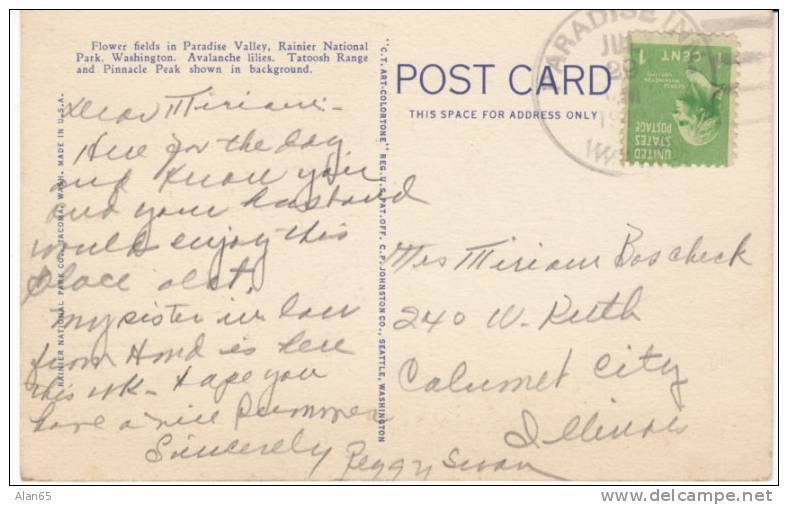 Flower fields in Paradise Valley, Rainier National
Park, Washington. Avalanche lilies. Tatoosh Range
and Pinnacle Peak shown in background.
Dear Miriam:-
Here for the day
and know you
and your husband
would enjoy this
place alot.
My sister in law
from Hond is here
this wk - Hope you
have a nice summer
Sincerely
Peggy Swan
RAINIER NATIONAL PARK CO., TACOMA, WASH. MADE IN U.S.A.
"C.T. ART-COLORTONE" REG. U.S. PAT. OFF. C.P. JOHNSTON CO., SEATTLE, WASHINGTON
POST CARD
THIS SPACE FOR ADDRESS ONLY
PARADISE INN
JUL
29
WASH
1 CENT
UNITED
STATES
POSTAGE
Mrs Miriam Boscheck
240 W. Ruth
Calumet City
Illinois
Alan65
http://www.delcampe.net